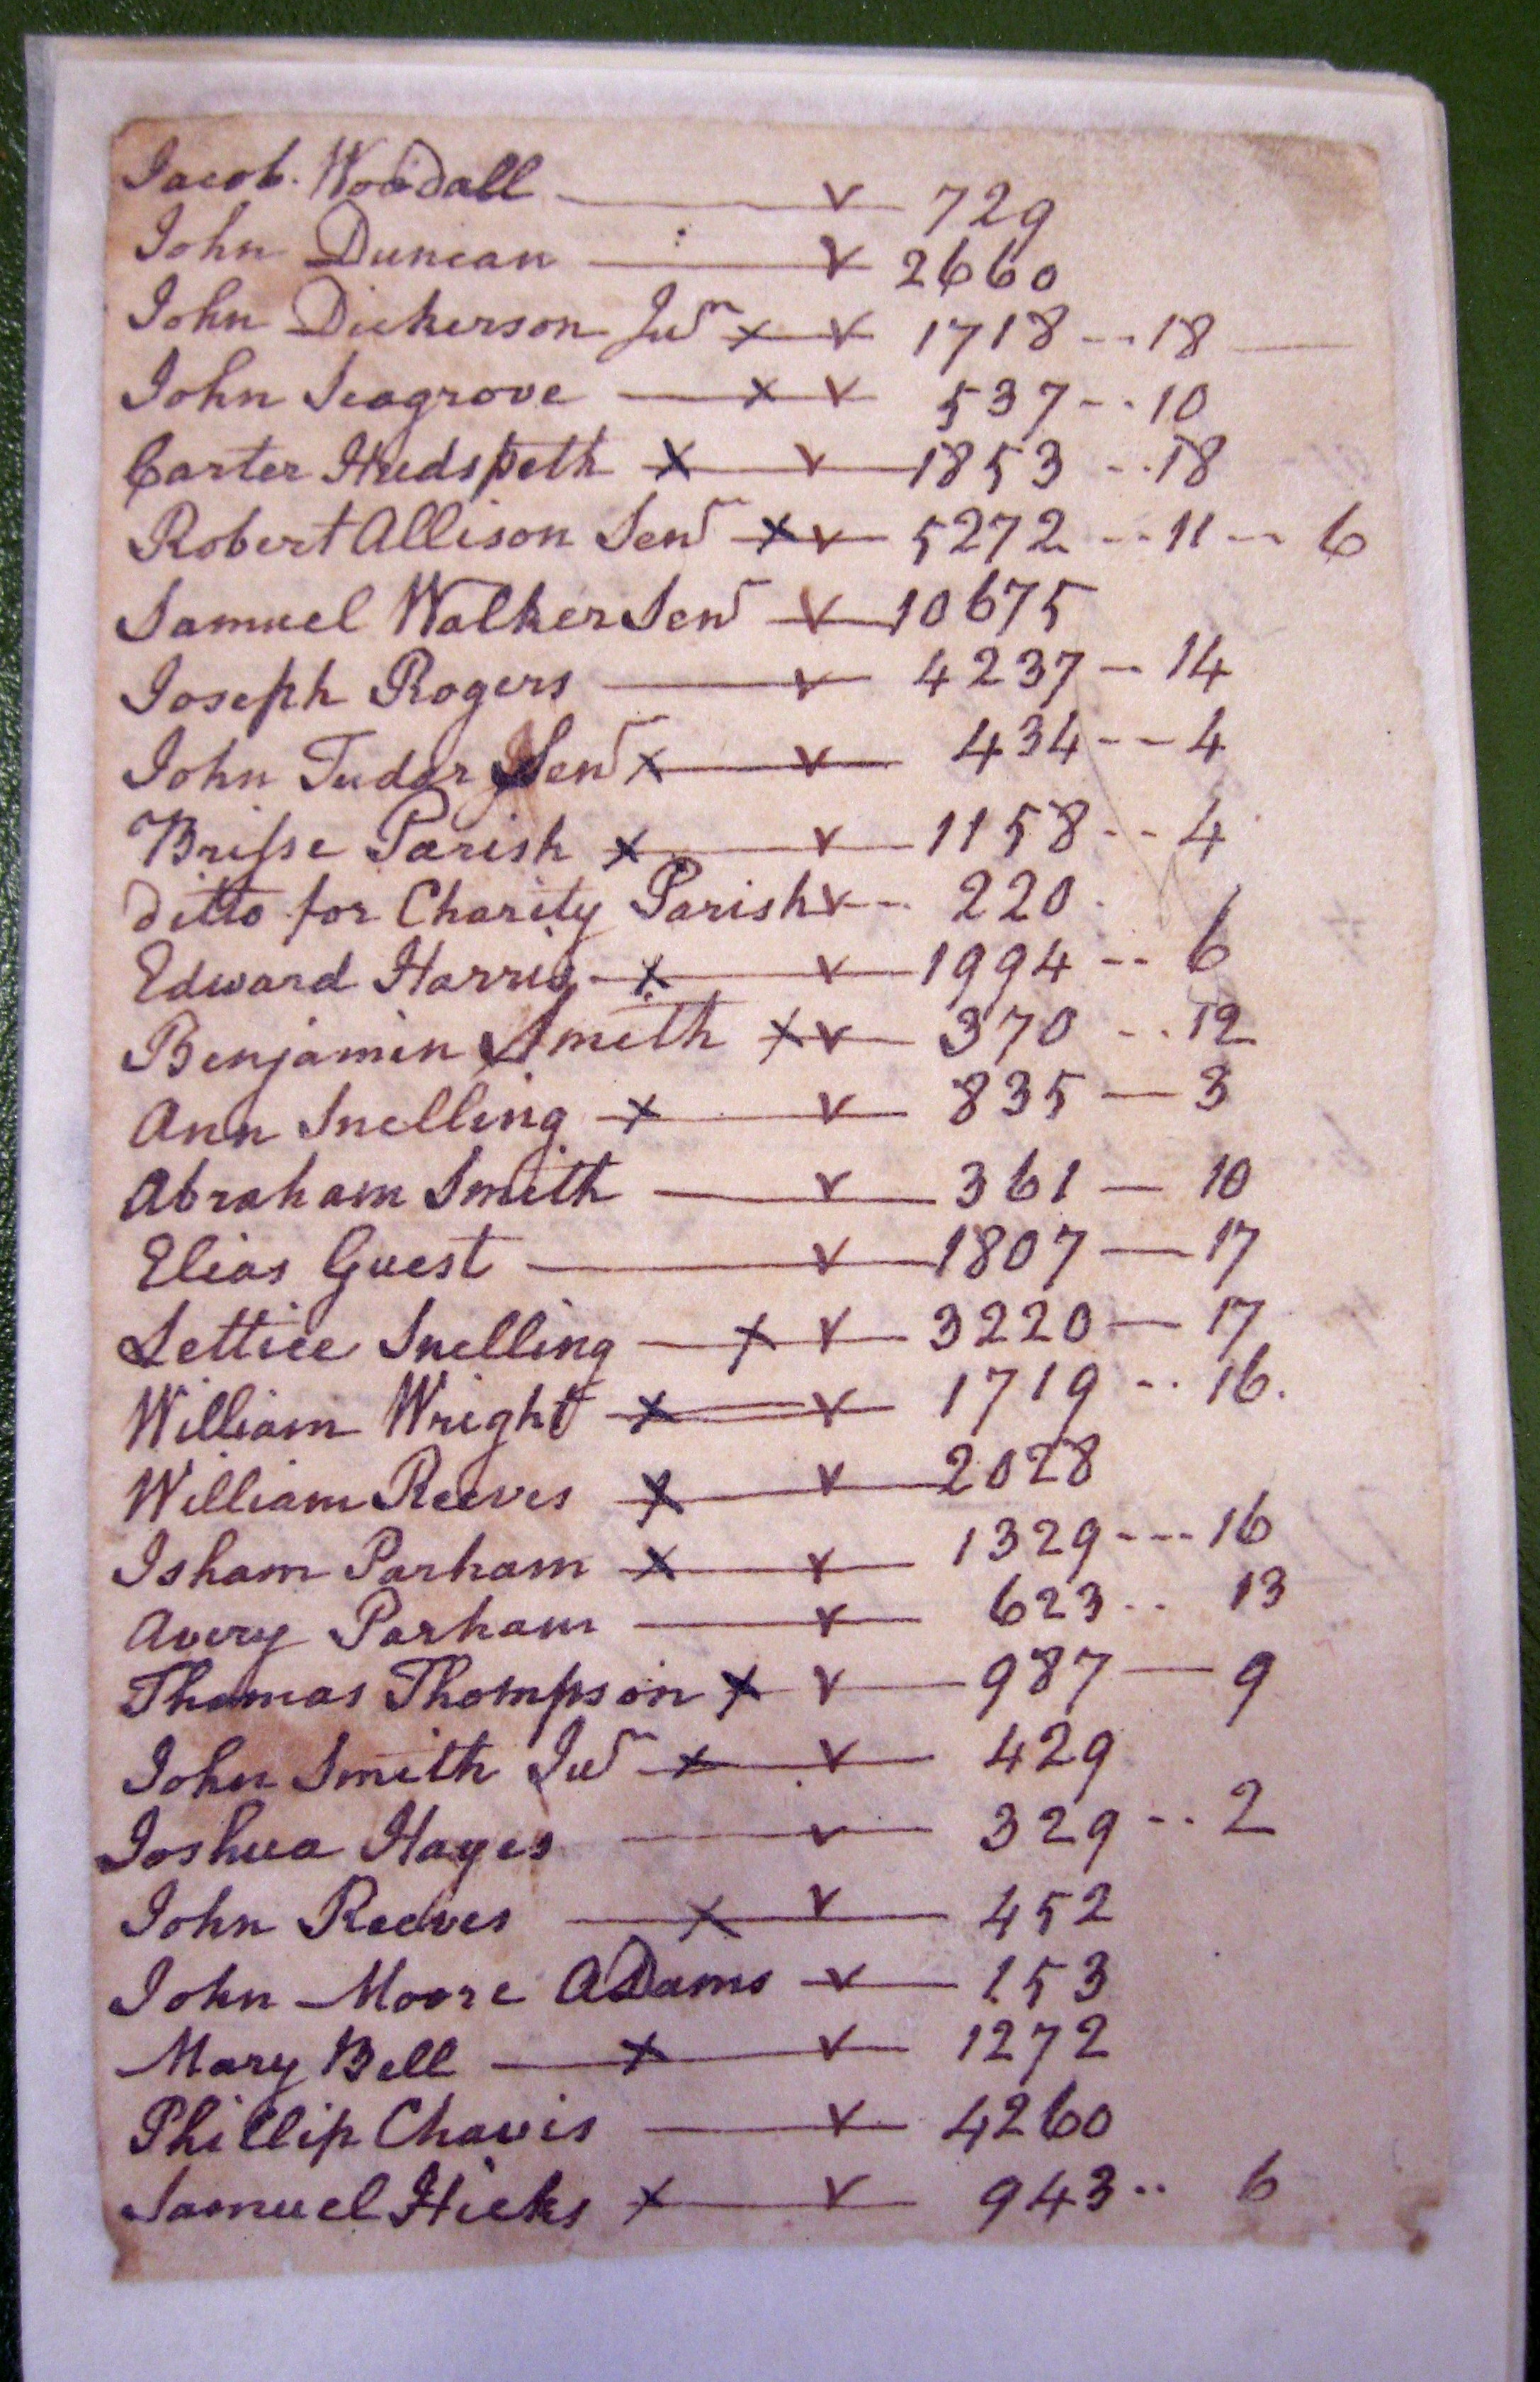 Jacob. Woodall v 729
John Duncan v 2660
John Dickerson Junr x v 1718 -- 18
John Seagrove x v 537 -- 10
Carter Hudspeth x v 1853 -- 18
Robert Allison Senr x v 5272 -- 11 -- 6
Samuel Walker Senr v 10675
Joseph Rogers v 4237 -- 14
John Tudor Senr x v 434 -- 4
Brisse Parish x v 1158 -- 4
ditto for Charity Parish v -- 220
Edward Harris x v 1994 -- 6
Benjamin Smith x v 370 -- 12
Ann Snelling x v 835 — 3
Abraham Smith v 361 — 10
Elias Guest v 1807 — 17
Lettice Snelling x v 3220 — 17
William Wright x v 1719 -- 16.
William Reeves x v 2028
Isham Parham x v 1329 --- 16
Avery Parham v 623 -- 13
Thomas Thompson x v 987 — 9
John Smith Junr x v 429
Joshua Hayes v 329 -- 2
John Reeves x v 452
John Moore Adams v 153
Mary Bell x v 1272
Phillip Chavis v 4260
Samuel Hicks x v 943 -- 6